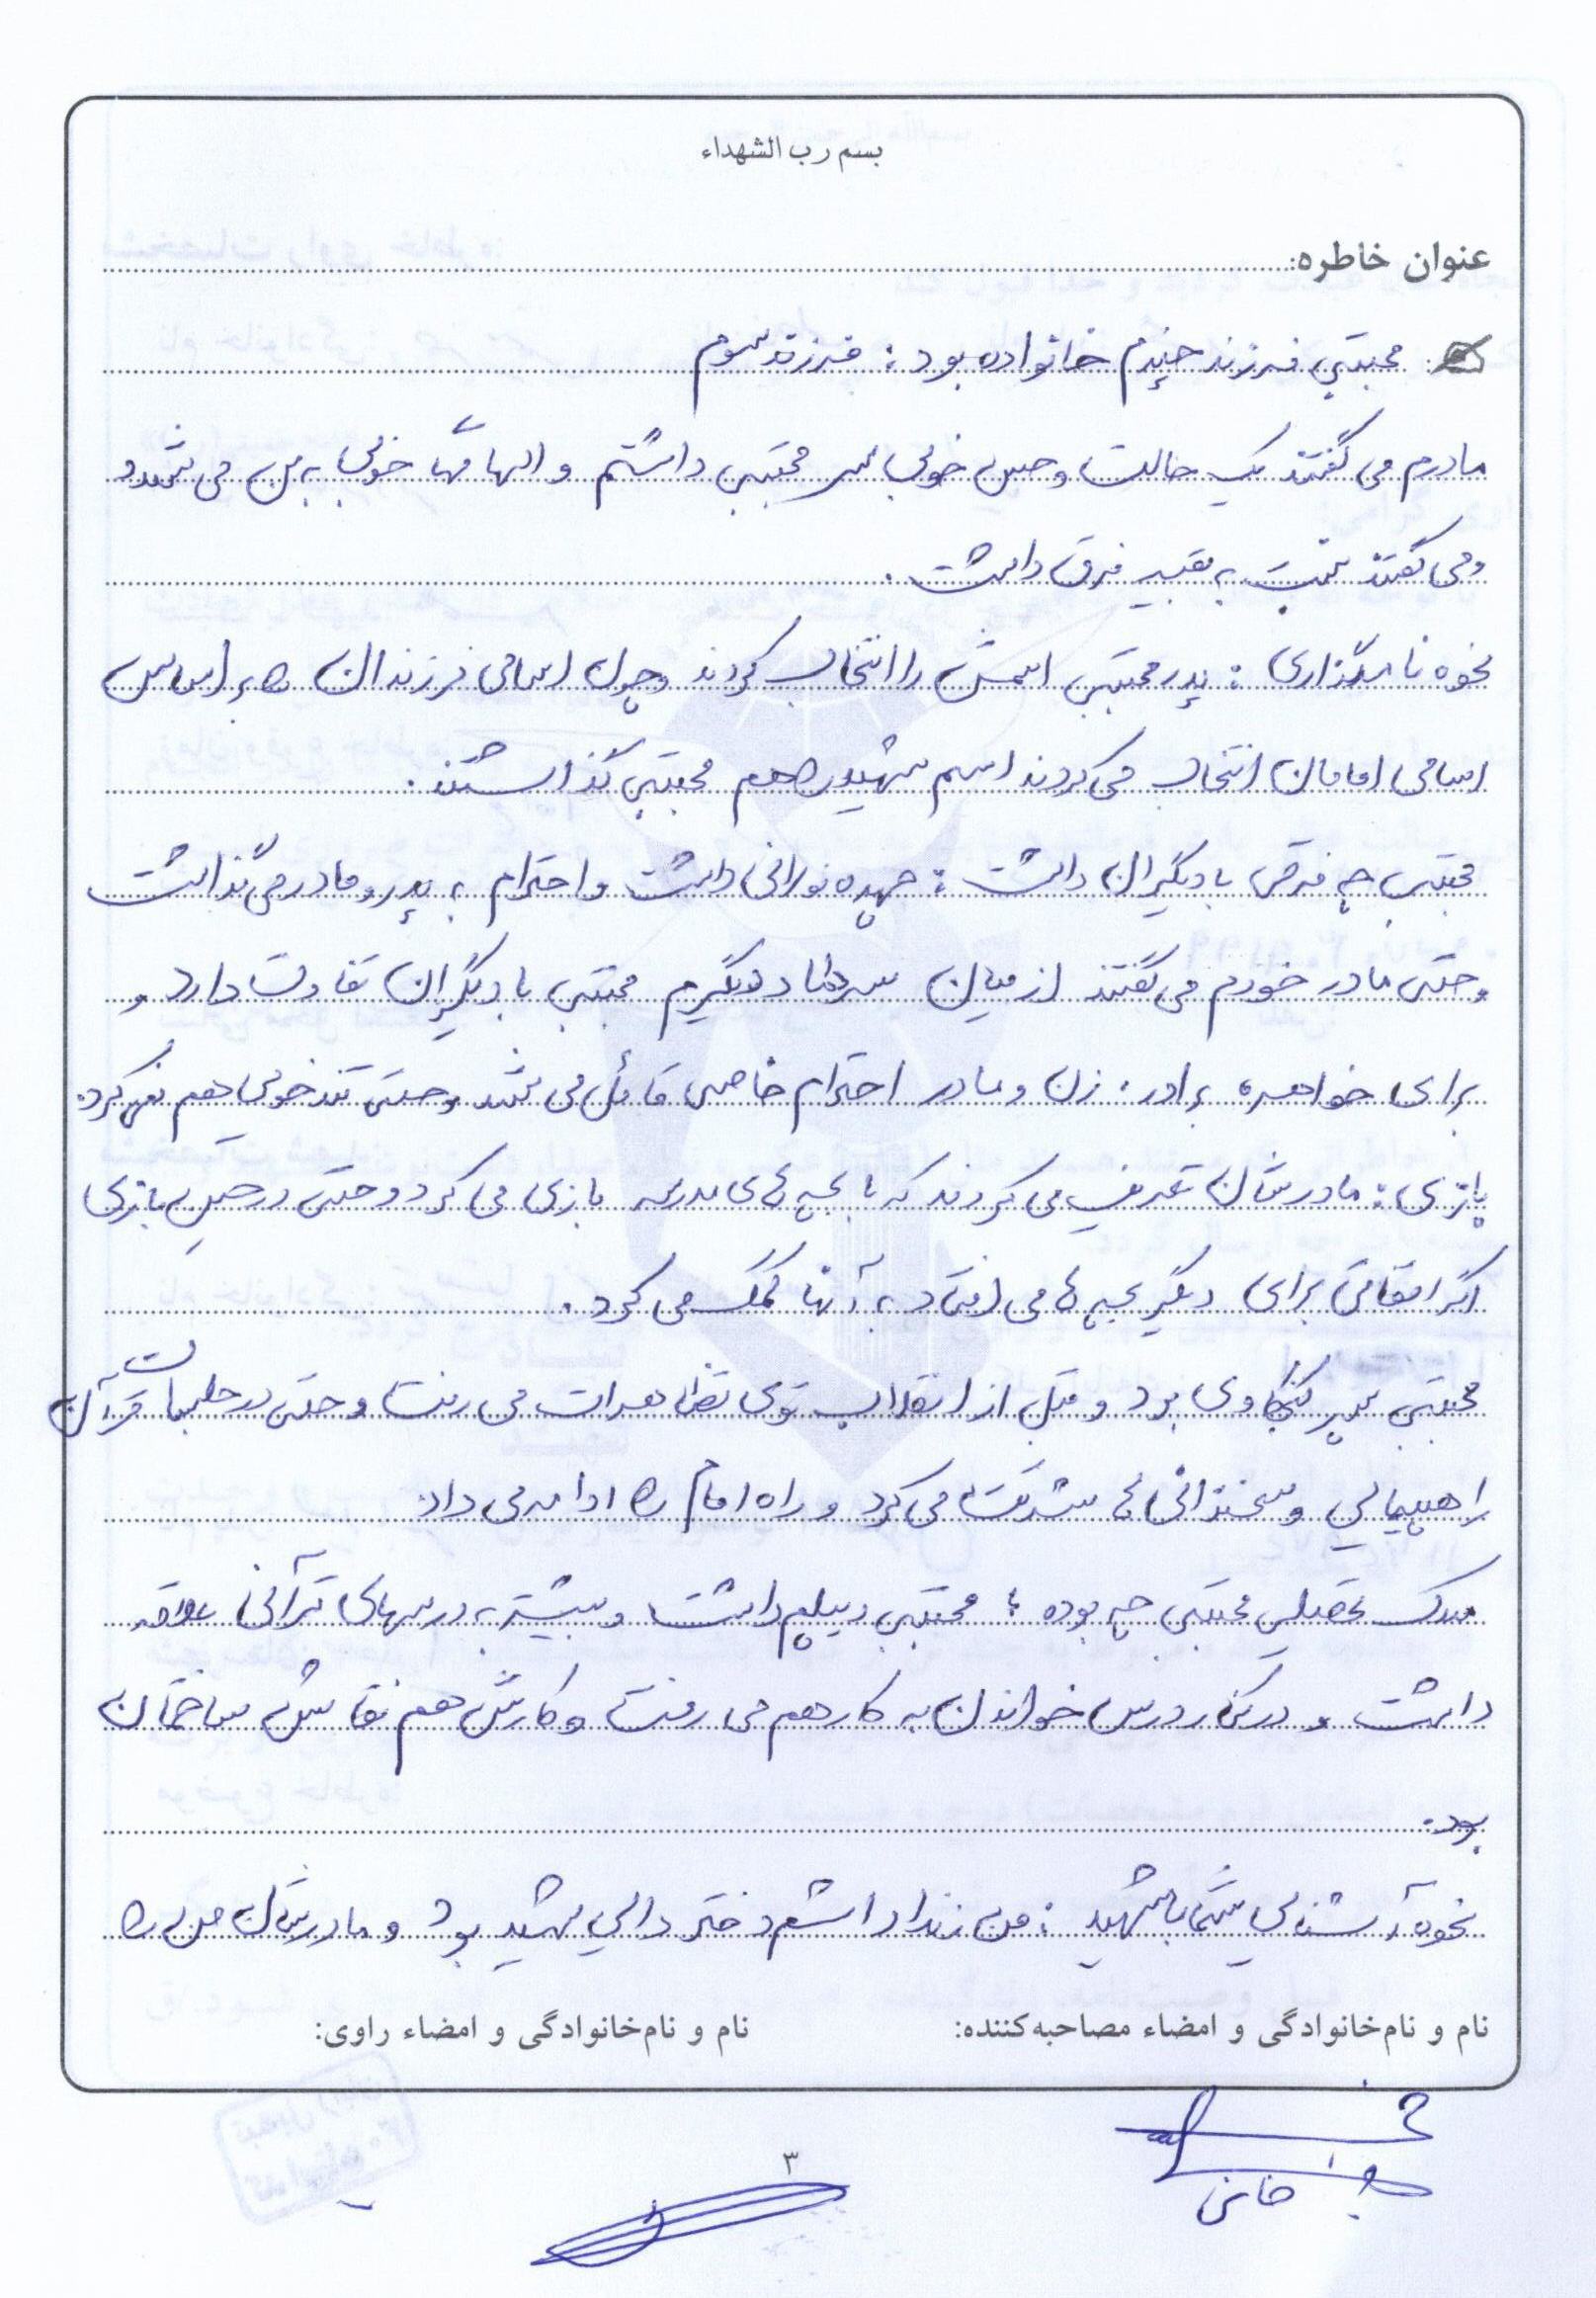 بسم رب الشهداء
عنوان خاطره:
مجتبی فرزند چندم خانواده بود: فرزند سوم
مادرم می گفتند یک حالت و حس خوبی سر مجتبی داشتم و الهامهای خوبی به من می شد و
و می گفتند نسبت به بقیه فرق داشت.
نحوه نامگذاری: پدر مجتبی اسمش را انتخاب کردند و چون اسامی فرزندان را بر اساس
اسامی امامان انتخاب می کردند اسم شهید را هم مجتبی گذاشتند.
مجتبی چه فرقی با دیگران داشت: چهره نورانی داشت و احترام به پدر و مادر می گذاشت
و حتی مادر خودم می گفتند از میان دیگرم مجتبی با دیگران تفاوت دارد و
برای خواهر و برادر، زن و مادر احترام خاصی قائل می شد و حتی تندخویی هم نمی کرد.
بازی: مادرشان تعریف می کردند که با بچه های مدرسه بازی می کرد و حتی در حین بازی
اگر اتفاقی برای دیگر بچه ها می افتاد به آنها کمک می کرد.
مجتبی پسر کنجکاوی بود و قبل از انقلاب توی تظاهرات می رفت و حتی در جلسات قرآن
راهپیمایی و سخنرانی ها شرکت می کرد و راه امام را ادامه می داد.
مدرک تحصیلی مجتبی چه بوده: مجتبی دیپلم داشت و بیشتر به درسهای قرآنی علاقه
داشت و در کنار درس خواندن به کار هم می رفت و کارش هم نقاشی ساختمان
بود.
نحوه آشنایی شما با شهید: من زنداداشم دختر دایی شهید بود و مادرشان من را
نام و نام‌خانوادگی و امضاء مصاحبه‌کننده:
نام و نام‌خانوادگی و امضاء راوی:
خانی
۳